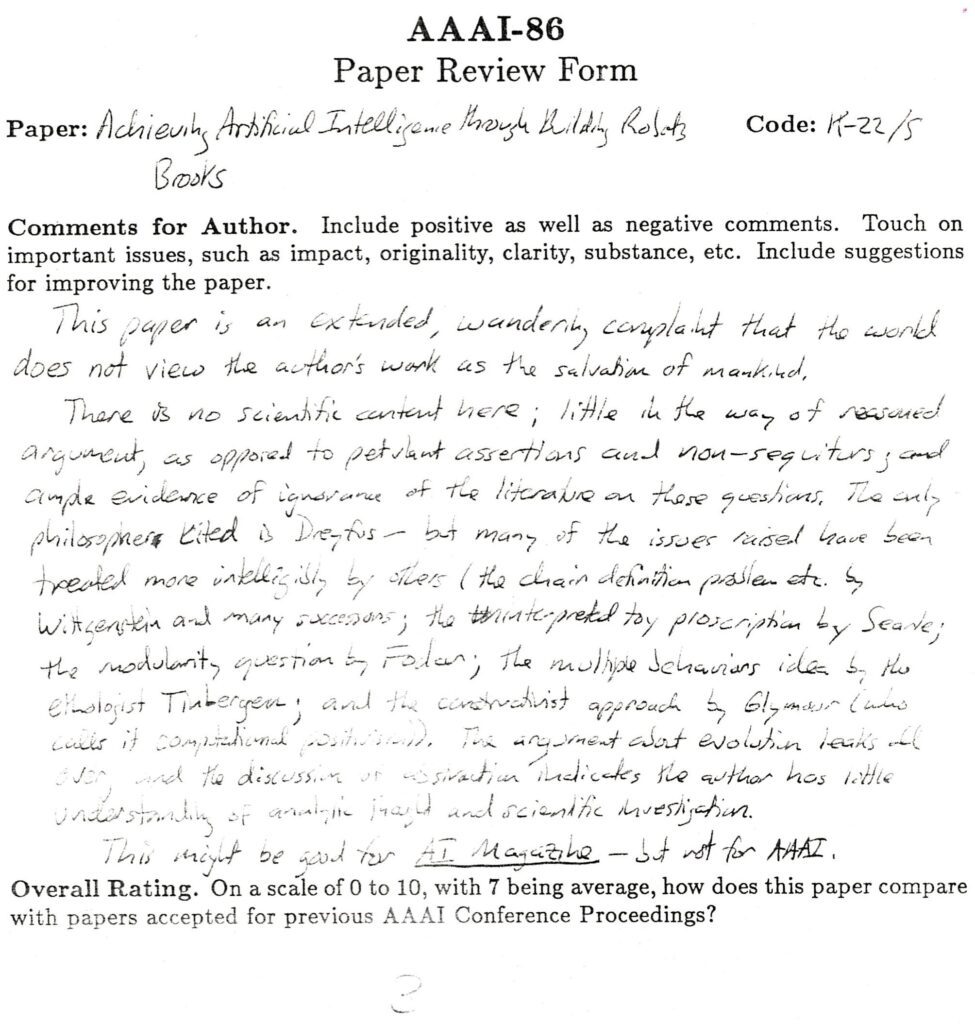 AAAI-86
Paper Review Form
Paper: Achieving Artificial Intelligence through Building Robots Code: K-22/5
Brooks
Comments for Author. Include positive as well as negative comments. Touch on
important issues, such as impact, originality, clarity, substance, etc. Include suggestions
for improving the paper.
This paper is an extended, wandering complaint that the world
does not view the author's work as the salvation of mankind.
There is no scientific content here; little in the way of reasoned
argument, as opposed to petulant assertions and non-sequiturs; and
ample evidence of ignorance of the literature on these questions. The only
philosopher cited is Dreyfus - but many of the issues raised have been
treated more intelligibly by others (the chair definition problem etc. by
Wittgenstein and many successors; the interpreted toy proscription by Searle;
the modularity question by Fodor; the multiple behaviors idea by the
ethologist Tinbergen; and the constructivist approach by Glymour (who
calls it computational positivism)). The argument about evolution leaks all
over, and the discussion of abstraction indicates the author has little
understanding of analytic thought and scientific investigation.
This might be good for AI Magazine - but not for AAAI.
Overall Rating. On a scale of 0 to 10, with 7 being average, how does this paper compare
with papers accepted for previous AAAI Conference Proceedings?
3